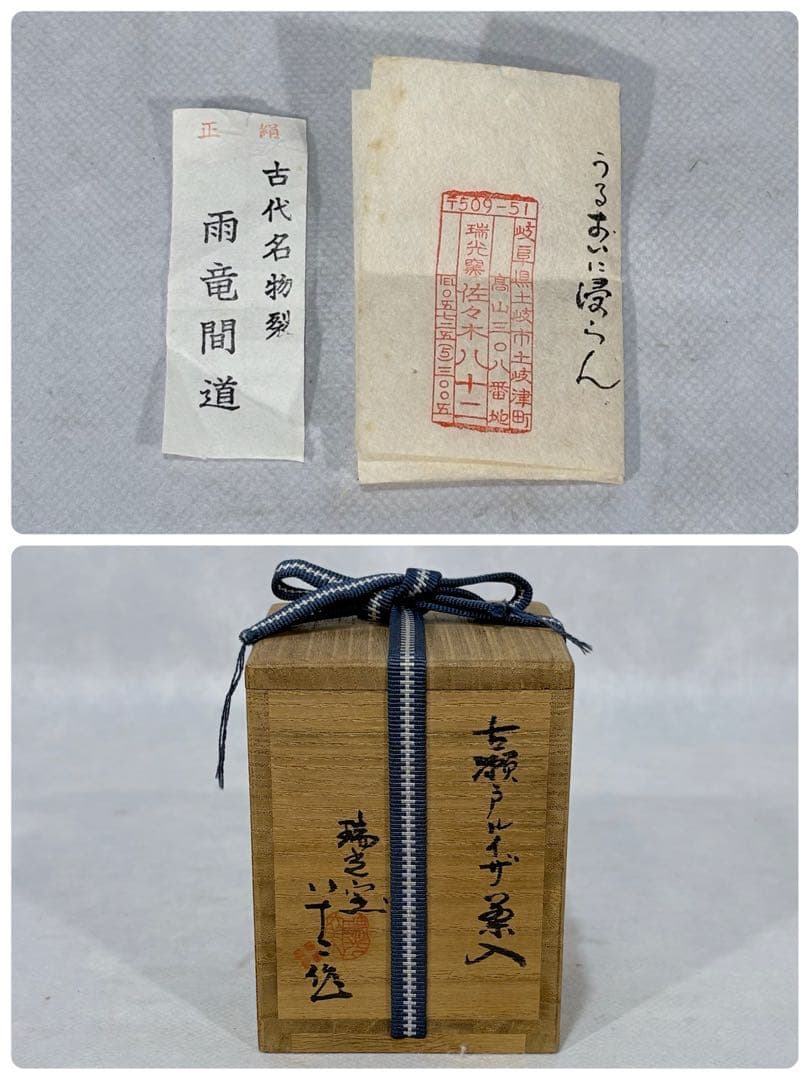 正絹
古代名物裂
雨竜間道
うるおいに浸らん
〒509-51
岐阜県土岐市土岐津町
高山三〇八番地
瑞光窯 佐々木八十二
TEL〇五七二五(5)三〇〇五
古瀬戸ルイザ茶入
瑞光窯
八十二作